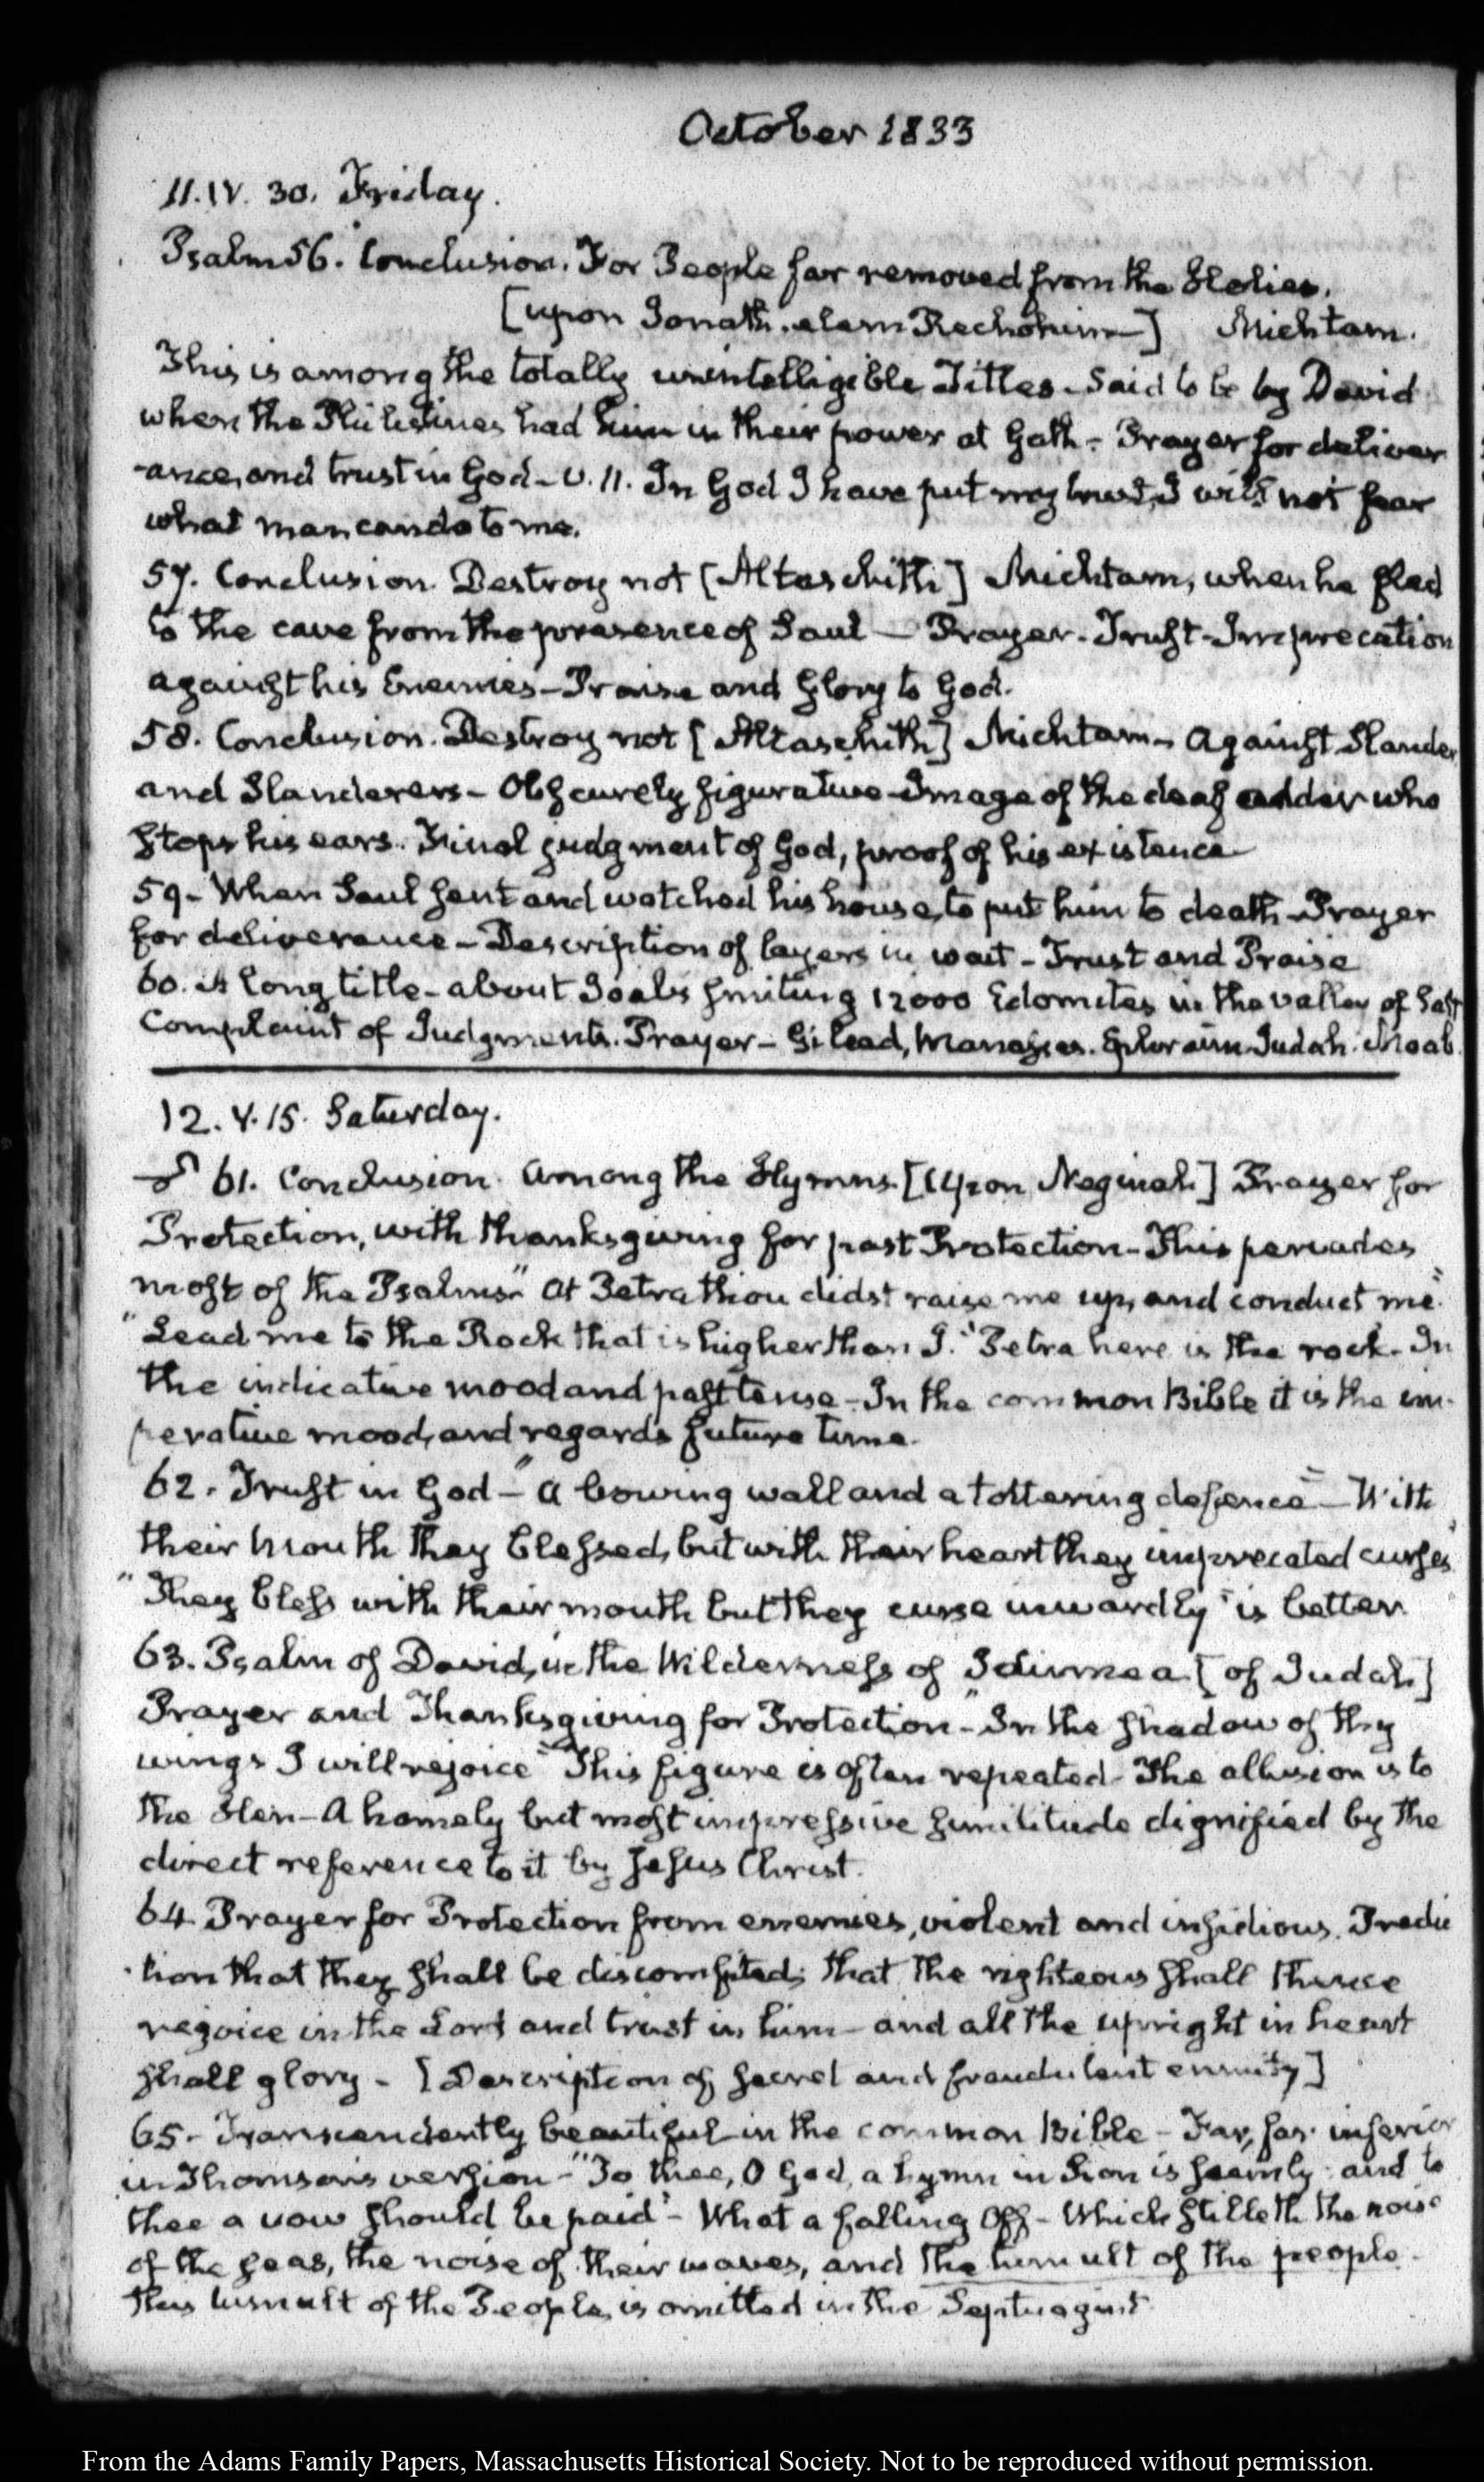 October 1833
11. IV. 30. Friday.
Psalm 56. Conclusion. For People far removed from the Holies.
[upon Jonath. elem Rechokim—] Michtam.
This is among the totally unintelligible Titles. Said to be by David
when the Philistines had him in their power at Gath - Prayer for deliver
-ance, and trust in God - v. 11. In God I have put my trust, I will not fear
what man can do to me.
57. Conclusion. Destroy not [Altaschith] Michtam, when he fled
to the cave from the presence of Saul — Prayer - Trust - Imprecation
against his Enemies - Praise and Glory to God.
58. Conclusion. Destroy not [Altaschith] Michtam - Against Slander
and Slanderers - Obscurely figurative - Image of the deaf adder who
stops his ears. Final judgment of God, proof of his existence
59 - When Saul sent and watched his house, to put him to death - Prayer
for deliverance - Description of layers in wait - Trust and Praise
60. A long title - about Joab's smiting 12000 Edomites in the valley of Salt
Complaint of Judgments. Prayer - Gilead, Manasses. Ephraim Judah. Moab.
12. V. 15. Saturday.
61. Conclusion. Among the Hymns. [Upon Neginah] Prayer for
Protection, with thanksgiving for past Protection - This pervades
most of the Psalms "At Petra thou didst raise me up, and conduct me."
"Lead me to the Rock that is higher than I." Petra here is the rock. In
the indicative mood and past tense - In the common Bible it is the im-
perative mood, and regards future time.
62. Trust in God - "A bowing wall and a tottering defence" - With
their mouth they blessed, but with their heart they imprecated curses"
"They bless with their mouth but they curse inwardly" is better
63. Psalm of David, in the Wilderness of Idumea [of Judah]
Prayer and Thanksgiving for Protection - "In the shadow of thy
wings I will rejoice" This figure is often repeated - The allusion is to
the Hen - A homely but most impressive similitude dignified by the
direct reference to it by Jesus Christ.
64 Prayer for Protection from enemies, violent and insidious. Predic
-tion that they shall be discomfited; that the righteous shall thence
rejoice in the Lord and trust in him - and all the upright in heart
shall glory - [Description of secret and fraudulent enmity]
65 - Transcendently beautiful in the common Bible - Far, far inferior
in Thomson's version - "To thee, O God, a hymn in Sion is seemly; and to
thee a vow should be paid" - What a falling off - Which stilleth the noise
of the seas, the noise of their waves, and the tumult of the people.
This tumult of the People, is omitted in the Septuagint
From the Adams Family Papers, Massachusetts Historical Society. Not to be reproduced without permission.